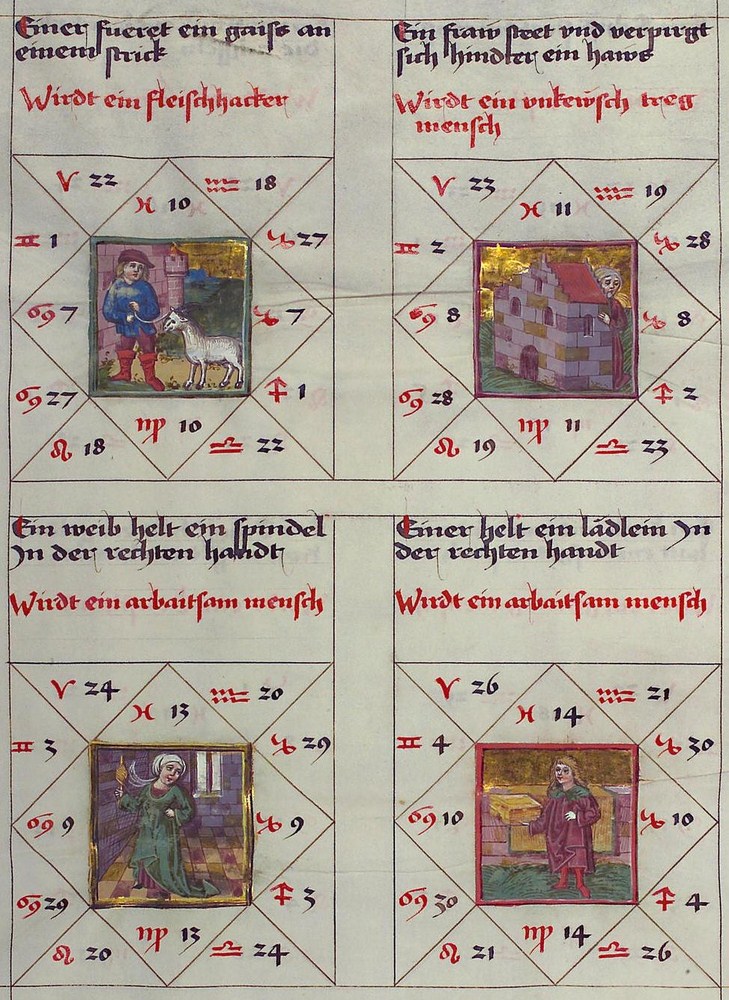 Einer fueret ein gaiss an
einem strick
Wirdt ein fleischhacker
♈ 22
♓ 10
♒ 18
♊ 1
♑ 27
♋ 7
♑ 7
♋ 27
♐ 1
♌ 18
♍ 10
♎ 22
Ein fraw steet vnd verpirgt
sich hindter ein haws
Wirdt ein vnkewsch treg
mensch
♈ 23
♓ 11
♒ 19
♊ 2
♑ 28
♋ 8
♑ 8
♋ 28
♐ 2
♌ 19
♍ 11
♎ 23
Ein weib helt ein spindel
Jn der rechten handt
Wirdt ein arbaitsam mensch
♈ 24
♓ 13
♒ 20
♊ 3
♑ 29
♋ 9
♑ 9
♋ 29
♐ 3
♌ 20
♍ 13
♎ 24
Einer helt ein lädlein Jn
der rechten handt
Wirdt ein arbaitsam mensch
♈ 26
♓ 14
♒ 21
♊ 4
♑ 30
♋ 10
♑ 10
♋ 30
♐ 4
♌ 21
♍ 14
♎ 26